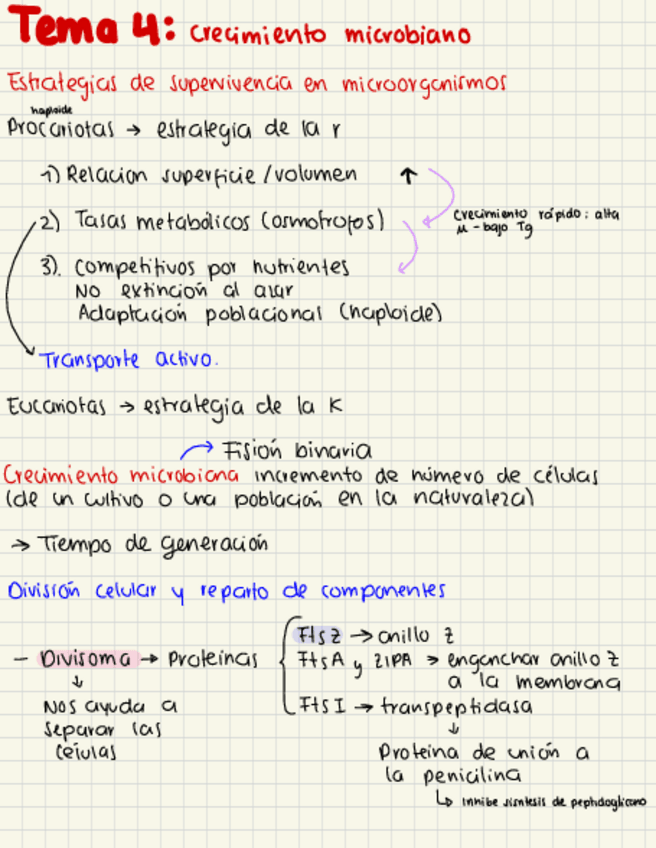 Tema 4: Crecimiento microbiano
Estrategias de supervivencia en microorganismos
haploide
Procariotas → estrategia de la r
1) Relacion superficie/volumen ↑
2) Tasas metabólicos (osmotrofos)
Crecimiento rápido: alta
μ - bajo Tg
3). Competitivos por nutrientes
No extinción al azar
Adaptación poblacional (haploide)
Transporte activo.
Eucariotas → estrategia de la K
→ Fisión binaria
Crecimiento microbiana incremento de número de células
(de un cultivo o una población en la naturaleza)
→ Tiempo de generación
División celular y reparto de componentes
- Divisoma → Proteínas
↓
Nos ayuda a
separar las
células
FtsZ → anillo Z
FtsA y ZIPA → enganchar anillo Z
a la membrana
FtsI → transpeptidasa
↓
Proteína de unión a
la penicilina
↳ Inhibe síntesis de peptidoglicano